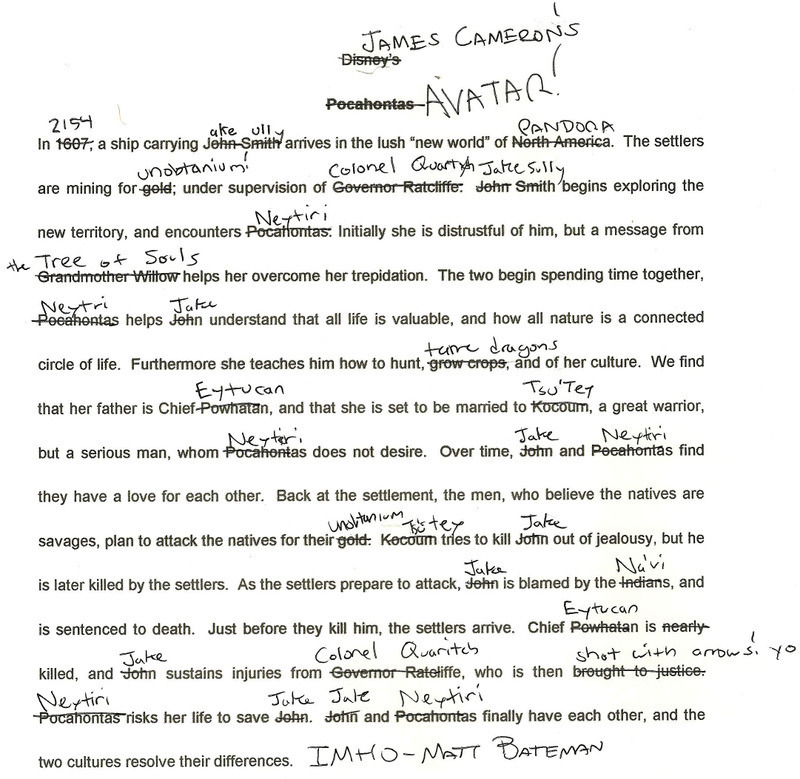 JAMES CAMERON'S
Disney's
Pocahontas AVATAR!
2154 ake ully PANDORA
In 1607, a ship carrying John Smith arrives in the lush "new world" of North America. The settlers
unobtanium! Colonel Quartych Jake Sully
are mining for gold; under supervision of Governor Ratcliffe. John Smith begins exploring the
Neytiri
new territory, and encounters Pocahontas. Initially she is distrustful of him, but a message from
the Tree of Souls
Grandmother Willow helps her overcome her trepidation. The two begin spending time together,
Neytri Jake
Pocahontas helps John understand that all life is valuable, and how all nature is a connected
tame dragons
circle of life. Furthermore she teaches him how to hunt, grow crops, and of her culture. We find
Eytucan Tsu'Tey
that her father is Chief Powhatan, and that she is set to be married to Kocoum, a great warrior,
Neytiri Jake Neytiri
but a serious man, whom Pocahontas does not desire. Over time, John and Pocahontas find
they have a love for each other. Back at the settlement, the men, who believe the natives are
unobtanium Tsu'tey Jake
savages, plan to attack the natives for their gold. Kocoum tries to kill John out of jealousy, but he
Jake Na'vi
is later killed by the settlers. As the settlers prepare to attack, John is blamed by the Indians, and
Eytucan
is sentenced to death. Just before they kill him, the settlers arrive. Chief Powhatan is nearly
Jake Colonel Quaritch shot with arrows! yo
killed, and John sustains injuries from Governor Ratcliffe, who is then brought to justice.
Neytiri Jake Jake Neytiri
Pocahontas risks her life to save John. John and Pocahontas finally have each other, and the
two cultures resolve their differences. IMHO - MATT BATEMAN